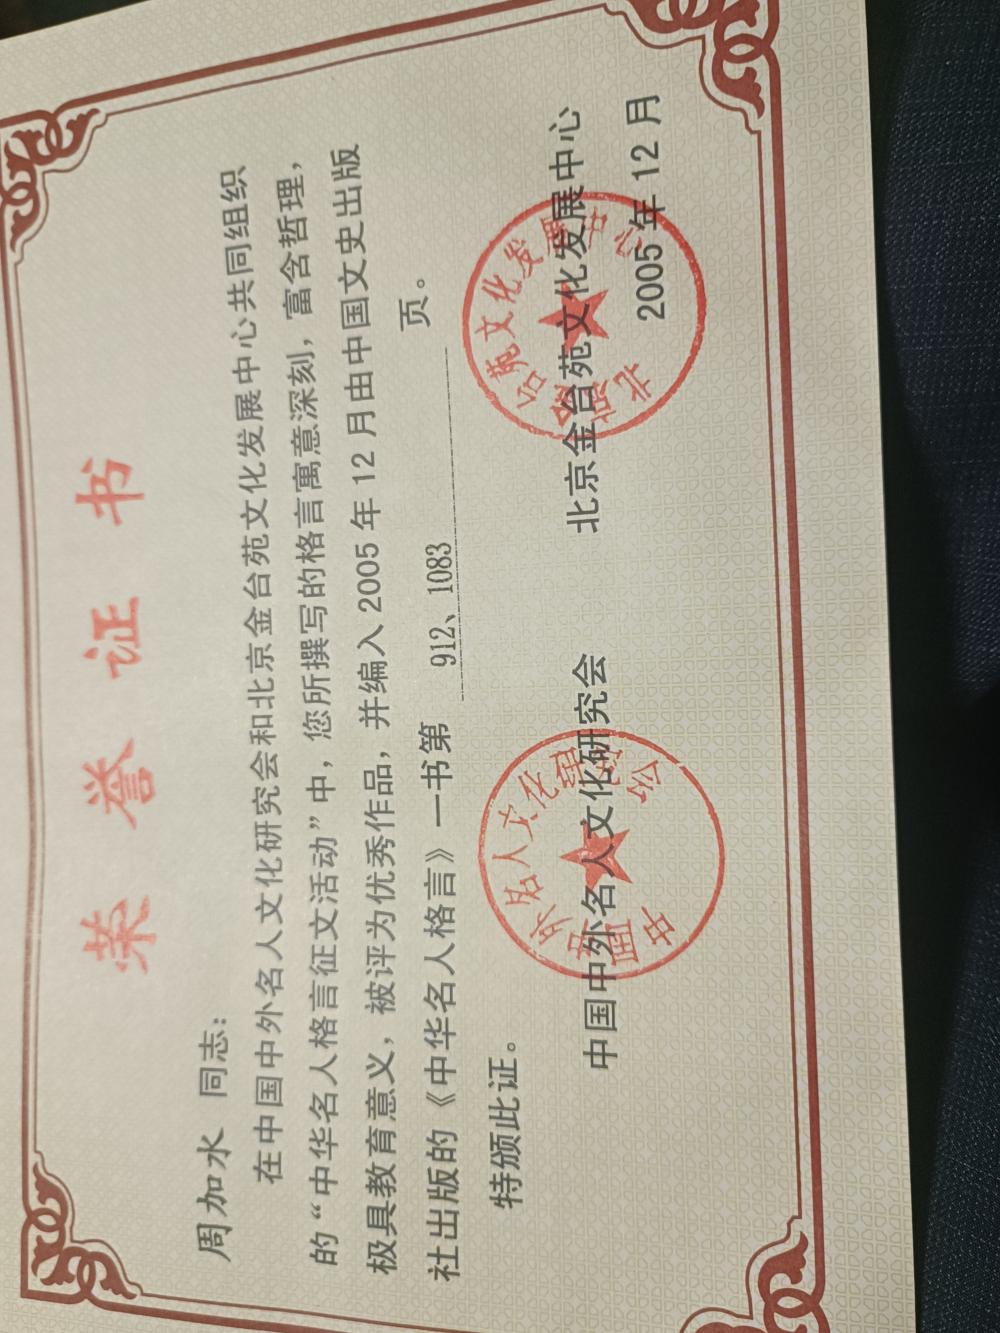 荣誉证书
周加水 同志：
在中国中外名人文化研究会和北京金台苑文化发展中心共同组织
的“中华名人格言征文活动”中，您所撰写的格言寓意深刻，富含哲理，
极具教育意义，被评为优秀作品，并编入2005年12月由中国文史出版
社出版的《中华名人格言》一书第 912、1083 页。
特颁此证。
中国中外名人文化研究会 北京金台苑文化发展中心
2005年12月
中国中外名人文化研究会
北京金台苑文化发展中心